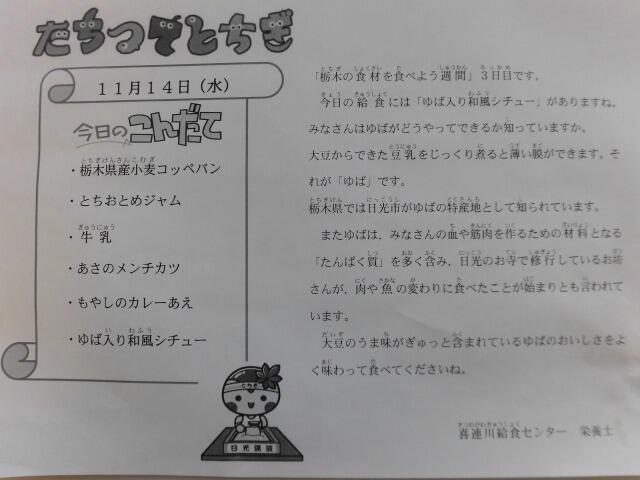 たちつてとちぎ
11月14日（水）
今日のこんだて
・栃木県産小麦コッペパン
・とちおとめジャム
・牛乳
・あさのメンチカツ
・もやしのカレーあえ
・ゆば入り和風シチュー
とちぎ
日光湯波
「栃木の食材を食べよう週間」３日目です。
今日の給食には「ゆば入り和風シチュー」がありますね。
みなさんはゆばがどうやってできるか知っていますか。
大豆からできた豆乳をじっくり煮ると薄い膜ができます。そ
れが「ゆば」です。
栃木県では日光市がゆばの特産地として知られています。
またゆばは、みなさんの血や筋肉を作るための材料となる
「たんぱく質」を多く含み、日光のお寺で修行しているお坊
さんが、肉や魚の変わりに食べたことが始まりとも言われて
います。
大豆のうま味がぎゅっと含まれているゆばのおいしさをよ
く味わって食べてくださいね。
喜連川給食センター　栄養士